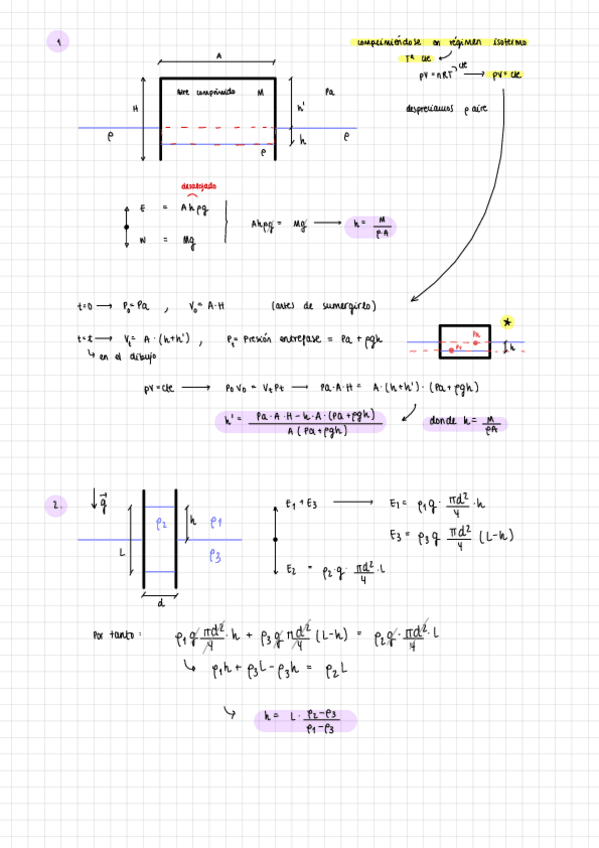 1
comprimiéndose en régimen isotermo
Tª cte
pV = nRT cte → pV = cte
A
Aire comprimido M
Pa
H
h'
h
ρ
ρ
ρ
despreciamos ρ aire
desalojado
E = Ahρg
W = Mg
Ahρg = Mg → h = M/ρA
t=0 → P₀ = Pa , V₀ = A·H (antes de sumergirlo)
t=t → Vt = A·(h+h') , Pt = Presión entrefase = Pa + ρgh
↳ en el dibujo
*
Pt
h
pV = cte → P₀V₀ = VtPt → Pa·A·H = A·(h+h')·(Pa+ρgh)
h' = Pa·A·H − h·A·(Pa+ρgh) / A(Pa+ρgh)
donde h = M/ρA
2.
g
ρ2
h
ρ1
ρ3
L
d
E1 + E3 → E1 = ρ1 g πd²/4 · h
E3 = ρ3 g πd²/4 (L−h)
E2 = ρ2·g· πd²/4 · L
Por tanto: ρ1 g πd²/4 · h + ρ3 g πd²/4 (L−h) = ρ2 g · πd²/4 · L
↳ ρ1h + ρ3L − ρ3h = ρ2L
↳ h = L · ρ2−ρ3/ρ1−ρ3